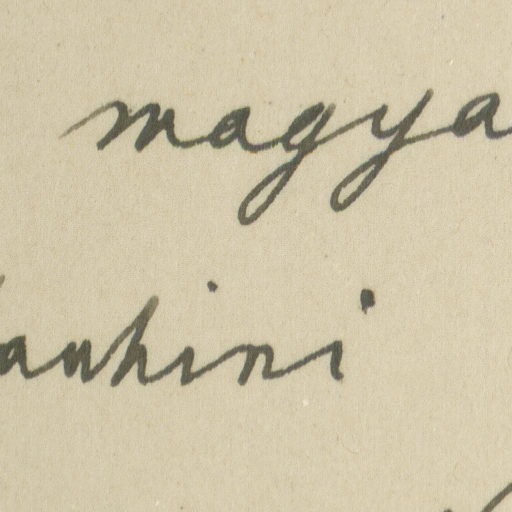 magya
auhini